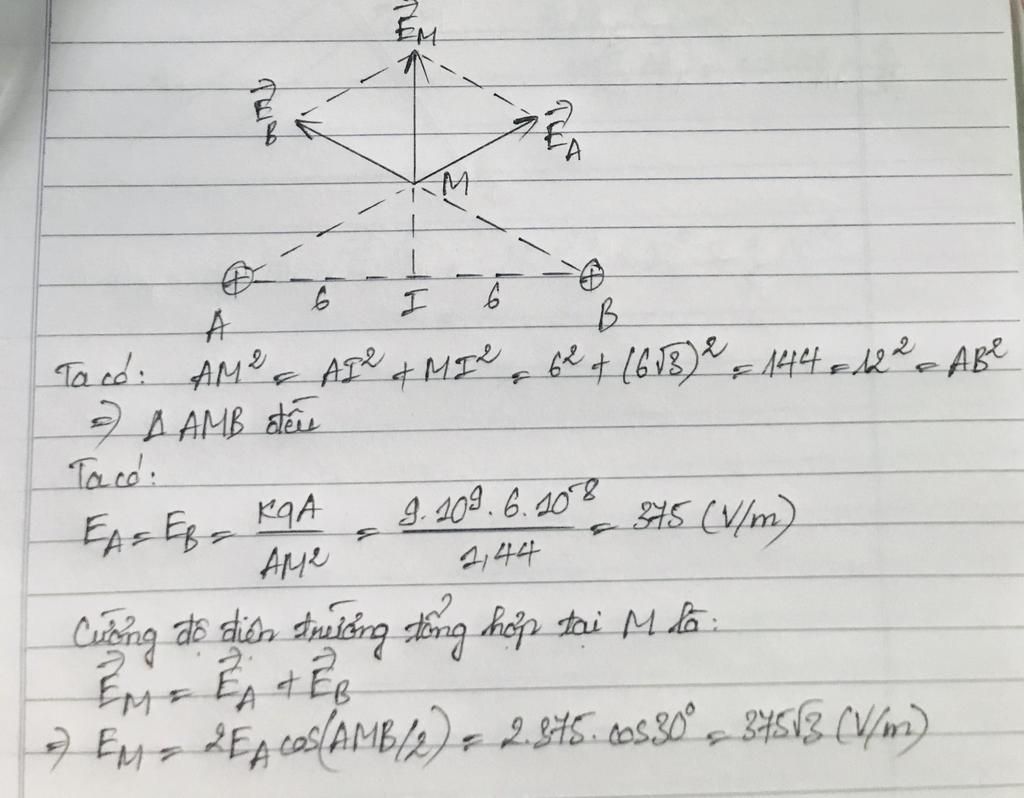 E⃗M
E⃗B
E⃗A
M
6 I 6
A B
Ta có: AM² = AI² + MI² = 6² + (6√3)² = 144 = 12² = AB²
=> Δ AMB đều
Ta có:
EA = EB = KqA / AM² = 9.10⁹.6.10⁻⁸ / 1,44 = 375 (V/m)
Cường độ điện trường tổng hợp tại M là:
E⃗M = E⃗A + E⃗B
=> EM = 2EA cos(AMB/2) = 2.375.cos30° = 375√3 (V/m)